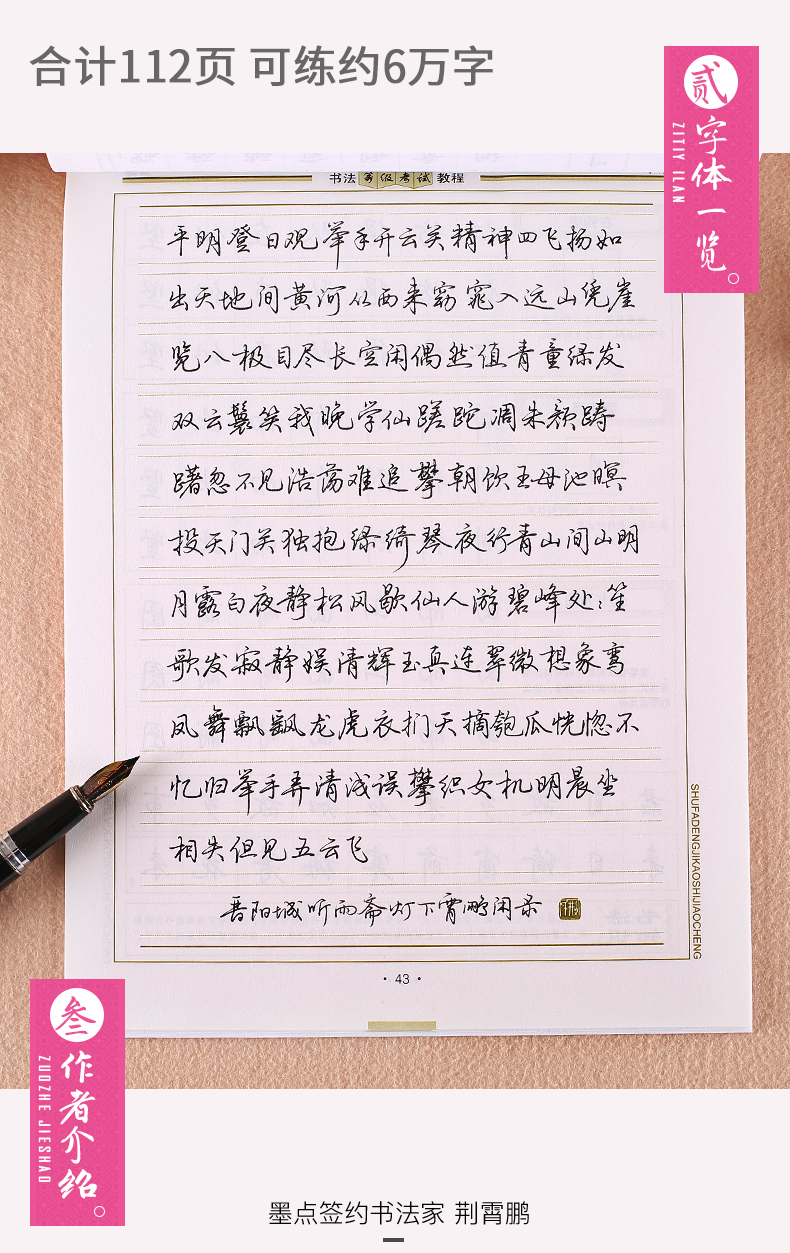 合计112页 可练约6万字
贰
字体一览
ZITIY ILAN
书法等级考试教程
平明登日观举手开云关精神四飞扬如
出天地间黄河从西来窈窕入远山凭崖
览八极目尽长空闲偶然值青童绿发
双云鬟笑我晚学仙蹉跎凋朱颜踌
躇忽不见浩荡难追攀朝饮王母池暝
投天门关独抱绿绮琴夜行青山间山明
月露白夜静松风歇仙人游碧峰处处笙
歌发寂静娱清辉玉真连翠微想象鸾
凤舞飘飘龙虎衣扪天摘匏瓜恍惚不
忆归举手弄清浅误攀织女机明晨坐
相失但见五云飞
晋阳城听雨斋灯下霄鹏闲录
SHUFADENGJIKAOSHIJIAOCHENG
· 43 ·
叁
作者介绍
ZUOZHE JIESHAO
墨点签约书法家 荆霄鹏